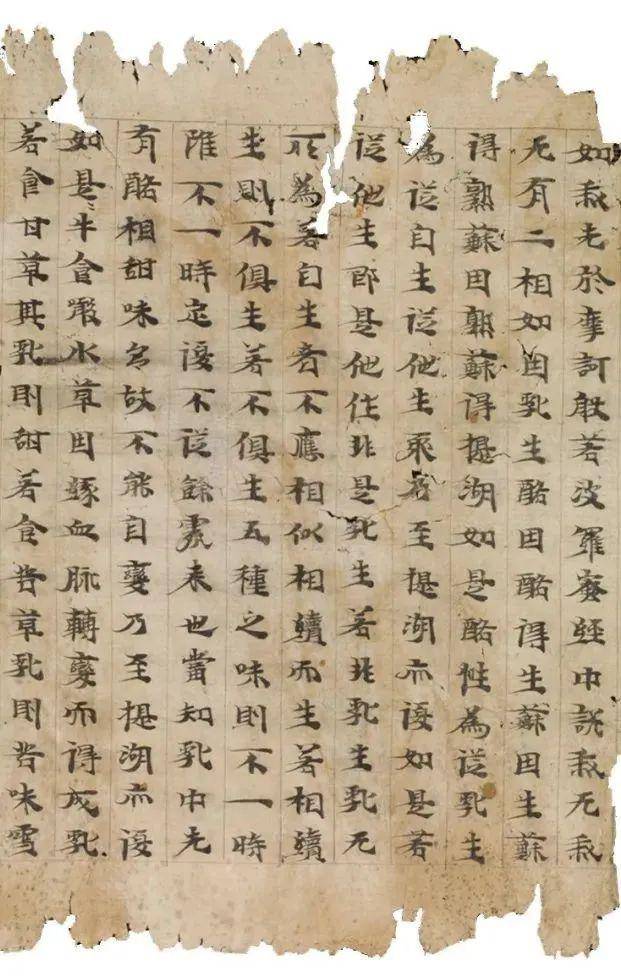 如我先於摩訶般若波羅蜜經中說我无我
无有二相如因乳生酪因酪得生蘇因生蘇
得熟蘇因熟蘇得提湖如是酪性為從乳生
為從自生從他生至提湖亦復如是若
從他生即是他作非是乳生若非乳生乳无
所為若自生者不應相似相續而生若相續
生則不俱生若不俱生五種之味則不一時
雖不一時定復不從餘處来也當知乳中先
有酪相甜味多故不能自變乃至提湖亦復
如是牛食噉水草因緣血脉轉變而得成乳
若食甘草其乳則甜若食苦草乳則苦味雪